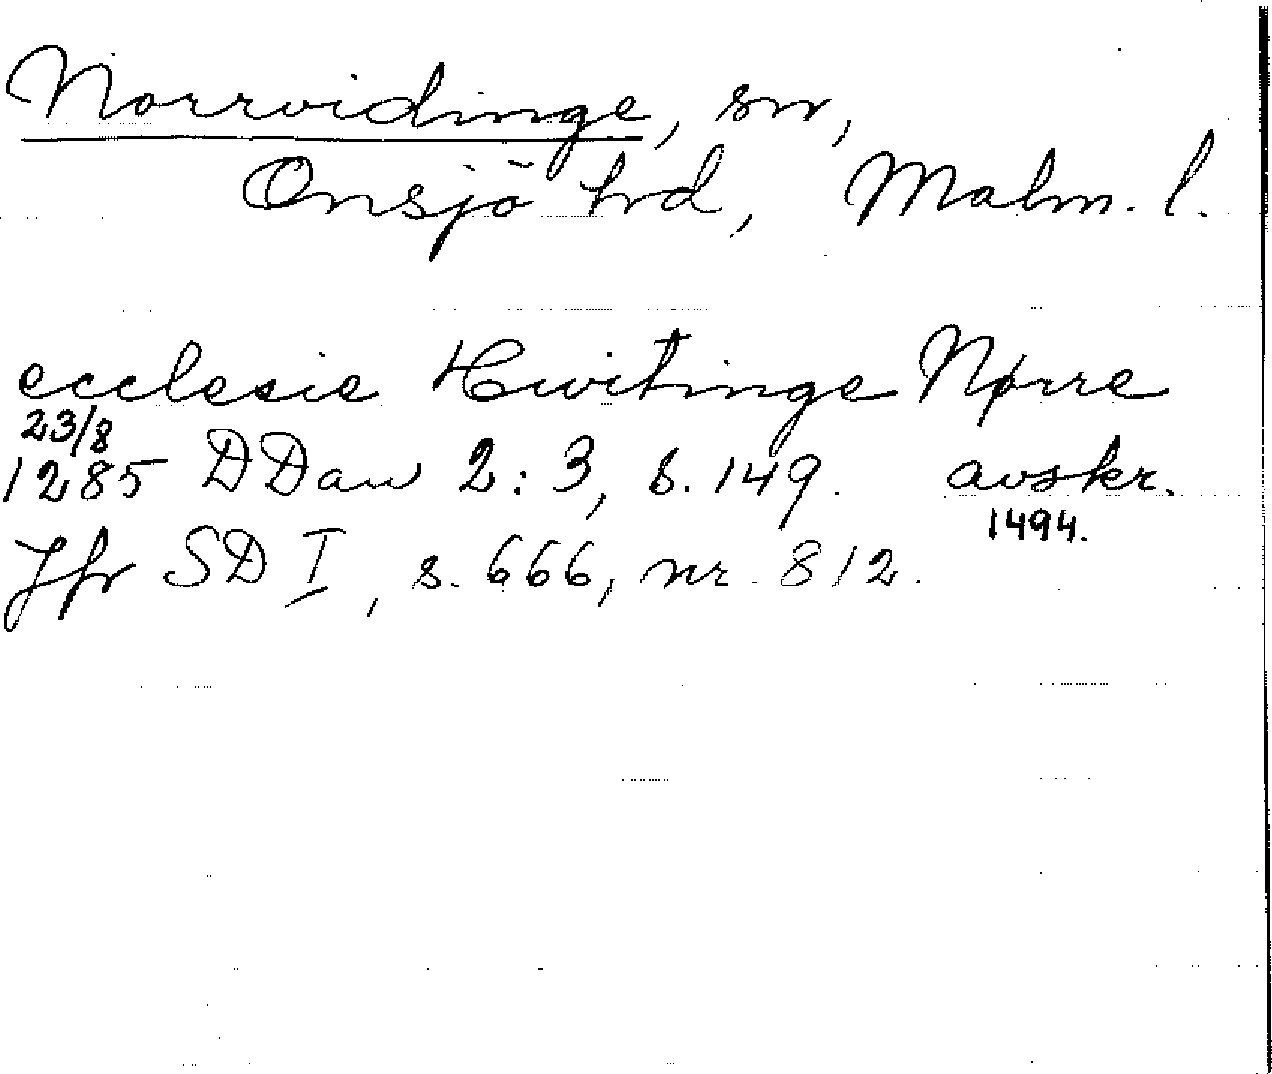 Norrvidinge, sn,
Onsjö hrd, Malm. l.
ecclesie Hwitinge Nørre
23/8
1285 DDan 2:3, s. 149. avskr.
1494.
Jfr SD I, s. 666, nr. 812.